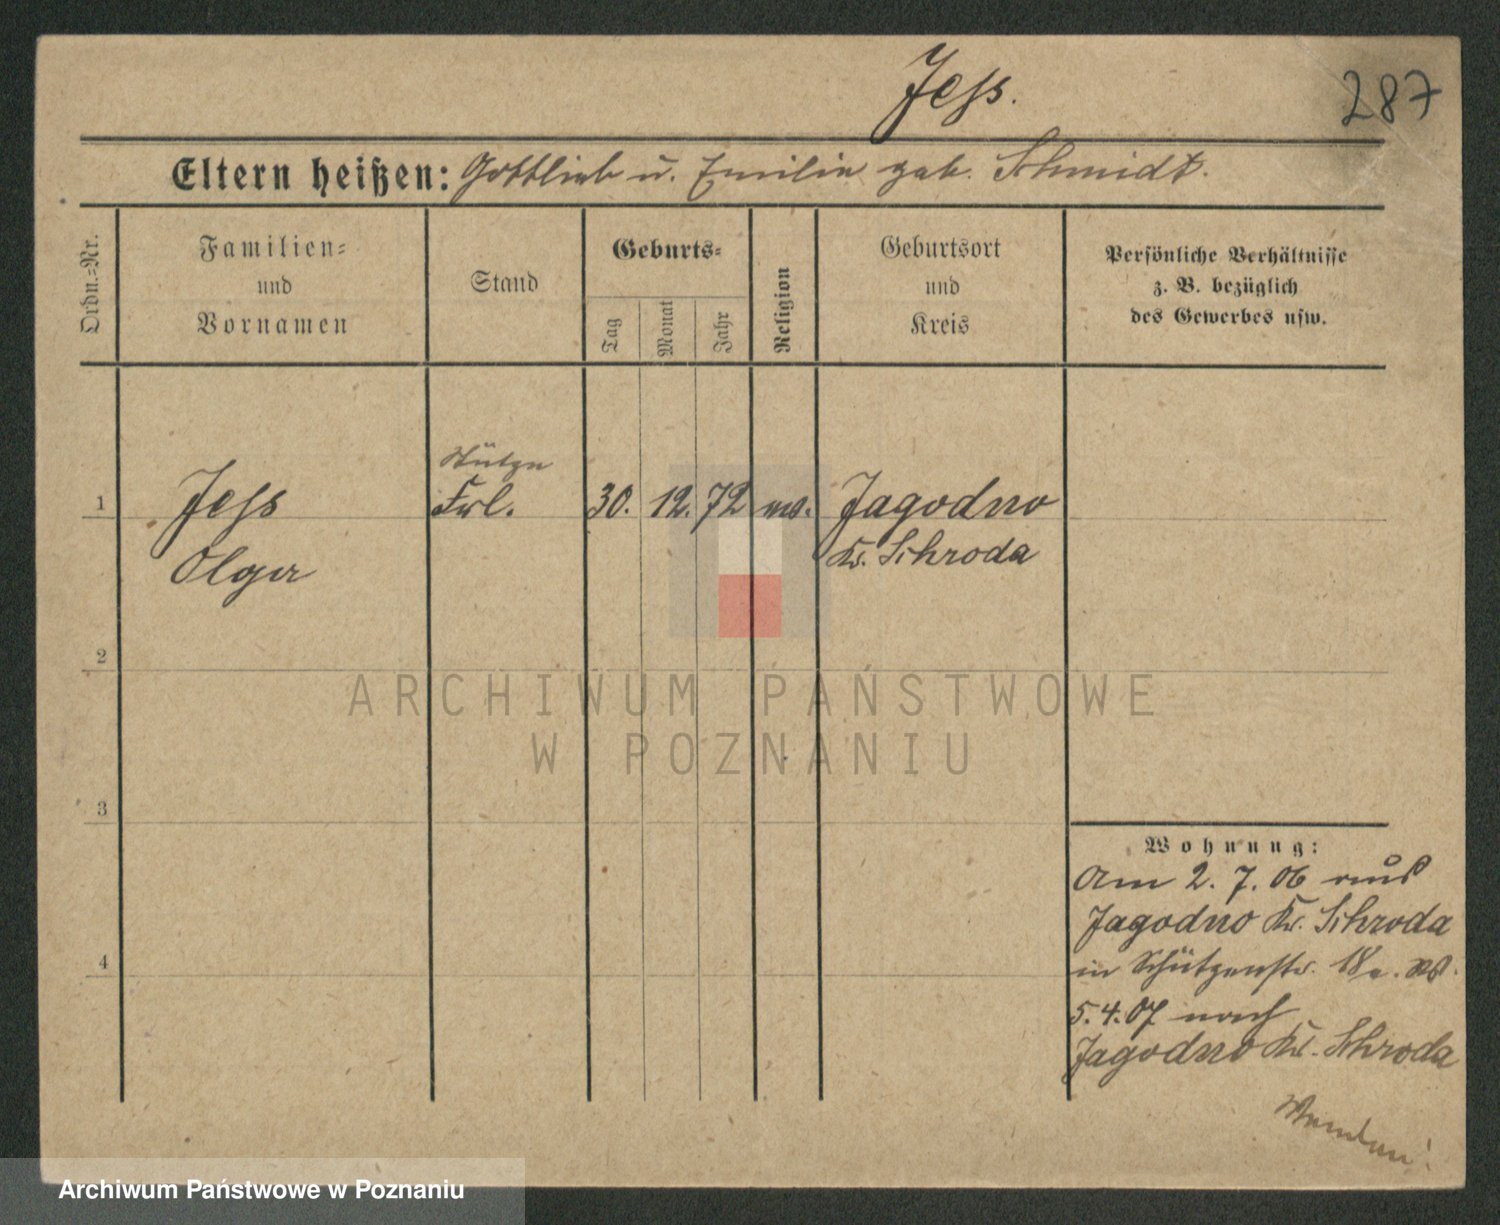 Jess.
287
Eltern heißen: Gottlieb u. Emilie geb. Schmidt.
Ordn.=Nr.
Familien=
und
Vornamen
Stand
Geburts=
Tag
Monat
Jahr
Religion
Geburtsort
und
Kreis
Persönliche Verhältnisse
z. B. bezüglich
des Gewerbes usw.
Stütze
1 Jess Frl. 30. 12. 72 ev. Jagodno
Olga Kr. Schroda
2
ARCHIWUM PAŃSTWOWE
W POZNANIU
3
Wohnung:
Am 2. 7. 06 aus
Jagodno Kr. Schroda
in Schützenstr. 18a.
5. 4. 07 nach
4
Jagodno Kr. Schroda
Wenden!
Archiwum Państwowe w Poznaniu